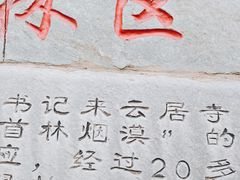 区
书记来云居寺
首林烟漠”的
应，经过20多